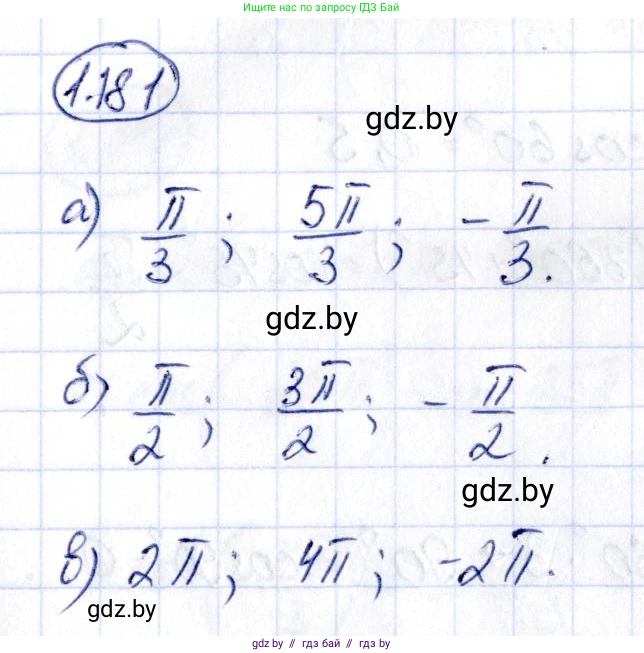 Ищите нас по запросу ГДЗ Бай
1.181
gdz.by
а) π/3 ; 5π/3 ; -π/3.
gdz.by
б) π/2 ; 3π/2 ; -π/2.
gdz.by
в) 2π; 4π; -2π.
gdz.by
gdz by // гдз бай // гдз by